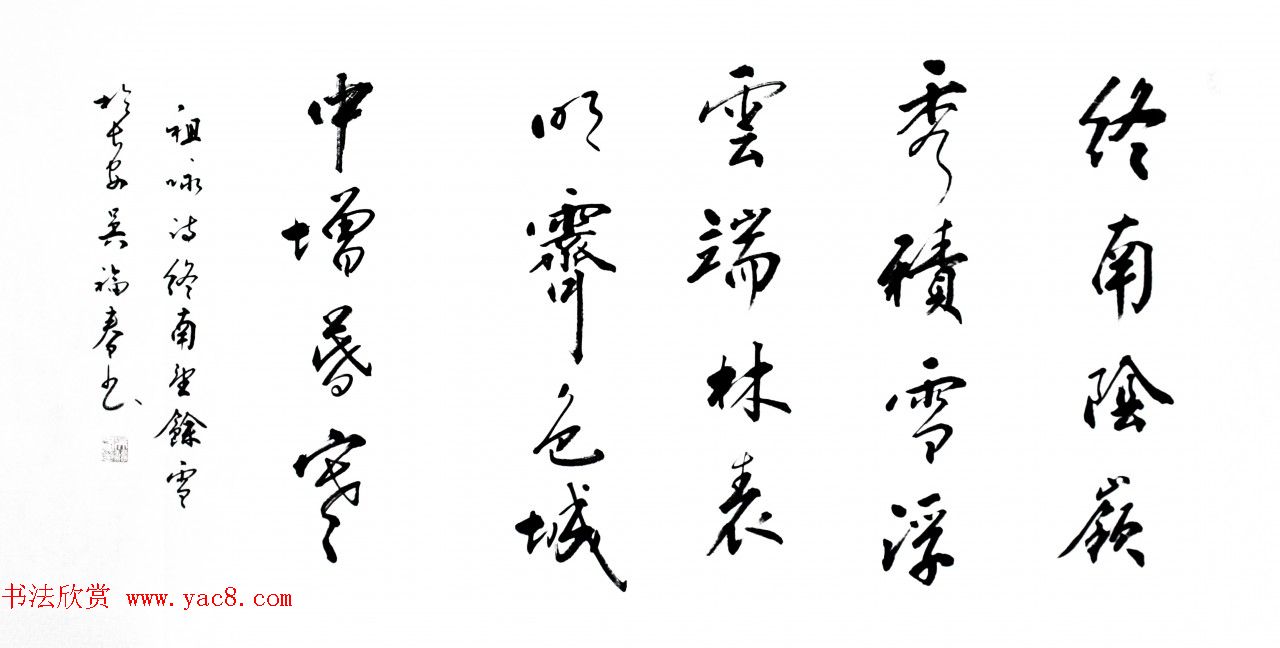 終南陰嶺
秀積雪浮
雲端林表
明霽色城
中增暮寒
祖咏诗终南望餘雪
於长安吴福春书
书法欣赏 www.yac8.com